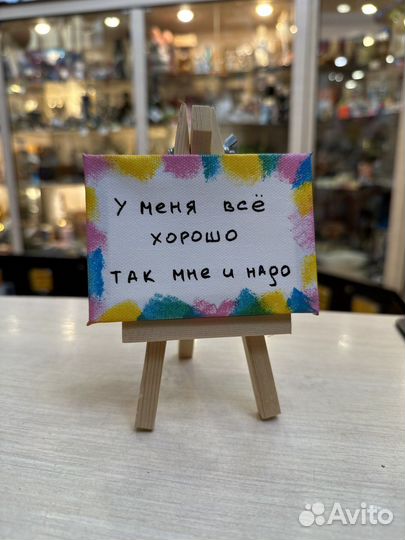 У меня всё
хорошо
так мне и надо
Avito